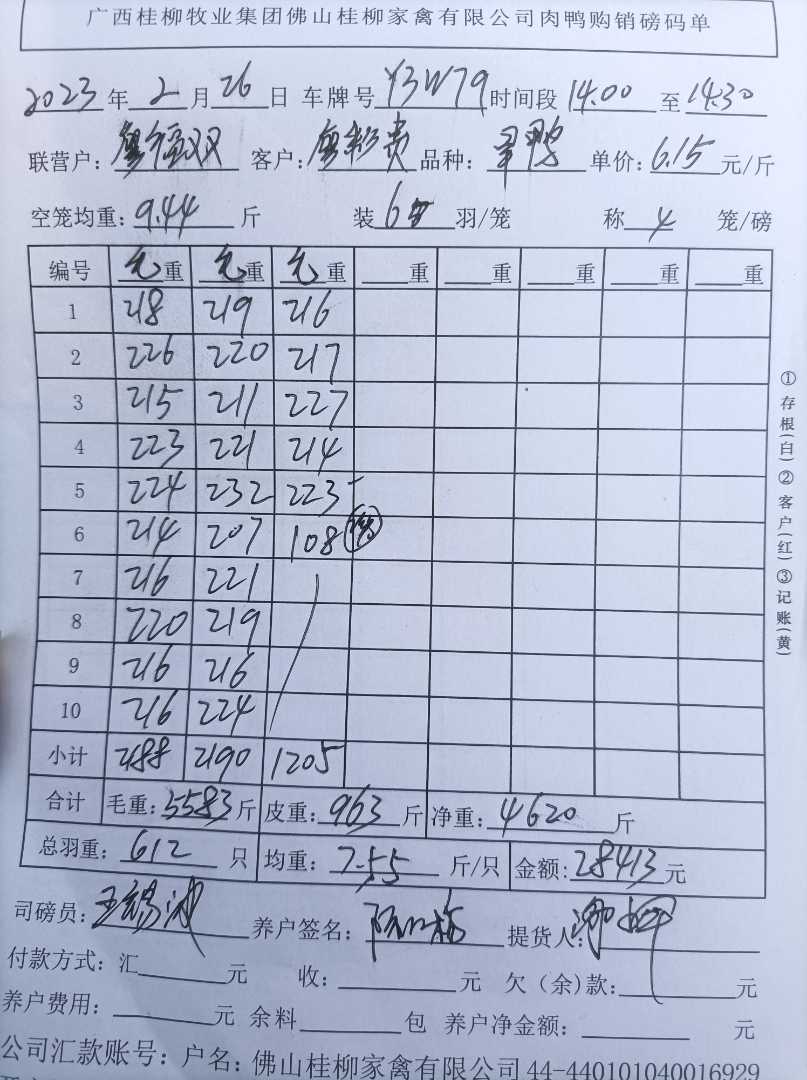 广西桂柳牧业集团佛山桂柳家禽有限公司肉鸭购销磅码单
2023年2月26日 车牌号Y3W79时间段14.00至14.30
联营户: 双 客户: 贵 品种: 鸭 单价:6.15元/斤
空笼均重:9.44斤 装6羽/笼 称4笼/磅
编号 毛重 毛重 毛重 重 重 重 重 重
1 218 219 216
2 226 220 217
3 215 211 227
4 223 221 214
5 224 232 223
6 214 207 108
7 216 221
8 220 219
9 216 216
10 216 224
小计 2188 2190 1205
合计 毛重:5583斤 皮重:963斤 净重:4620斤
总羽重:612只 均重:7.55斤/只 金额:28413元
司磅员:王锡 养户签名: 提货人:
付款方式:汇 元 收: 元 欠(余)款: 元
养户费用: 元 余料 包 养户净金额: 元
公司汇款账号:户名:佛山桂柳家禽有限公司44-440101040016929
①存根(白)②客户(红)③记账(黄)